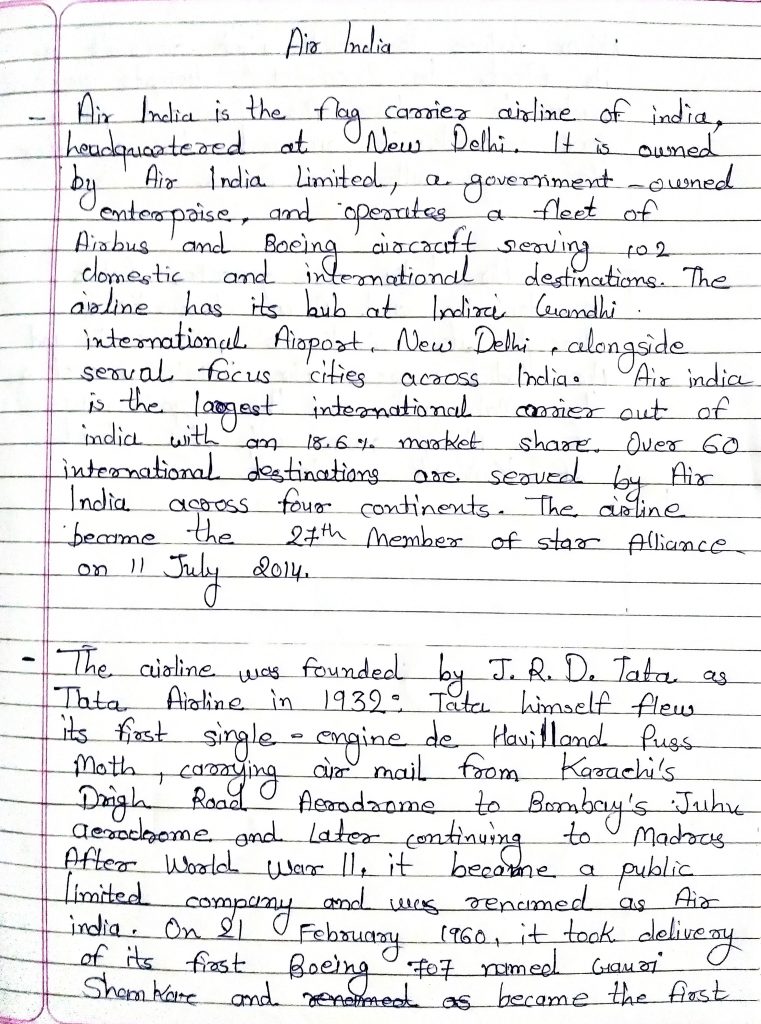 Air India
- Air India is the flag carrier airline of india,
headquartered at New Delhi. It is owned
by Air India Limited, a government-owned
enterprise, and operates a fleet of
Airbus and Boeing aircraft serving 102
domestic and international destinations. The
airline has its hub at Indira Gandhi
international Airport, New Delhi, alongside
serval focus cities across India. Air india
is the largest international carrier out of
india with an 18.6% market share. Over 60
international destinations are served by Air
India across four continents. The airline
became the 27th Member of star Alliance
on 11 July 2014.
- The airline was founded by J. R. D. Tata as
Tata Airline in 1932: Tata himself flew
its first single-engine de Havilland Puss
Moth, carrying air mail from Karachi's
Drigh Road Aerodrome to Bombay's Juhu
aerodrome and Later continuing to Madras
After World War II, it became a public
limited company and was renamed as Air
india. On 21 February 1960, it took delivery
of its first Boeing 707 named Gauri
Shankare and renamed as became the first